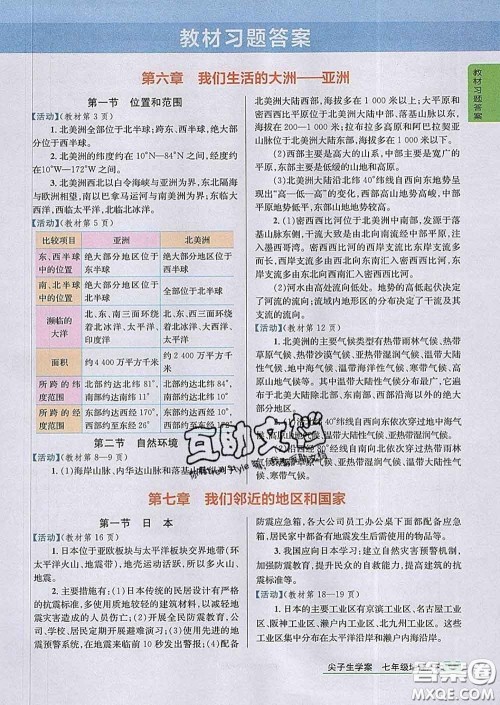 教材习题答案
教材习题答案
第六章 我们生活的大洲——亚洲
第一节 位置和范围
【活动】(教材第 3 页)
1. 北美洲全部位于北半球;跨东、西半球,绝大部
分位于西半球。
2. 北美洲的纬度约在 10°N—84°N 之间,经度约
在10°W—172°W 之间。
3. 北美洲西北以白令海峡与亚洲为界,东北隔海
与欧洲相望,南以巴拿马运河与南美洲为界;东临大
西洋,西临太平洋,北临北冰洋。
【活动】(教材第 5 页)
比较项目 亚洲 北美洲
东、西半球
中的位置 绝大部分地区位于
东半球 绝大部分地区位于
西半球
南、北半球
中的位置 绝大部分地区位于
北半球 全部位于北半球
濒临的
大洋 北、东、南三面环绕
着北冰洋、太平洋、
印度洋 北、东、西三面环绕
着北冰洋、大西洋、
太平洋
面积 约4 400 万平方千米 约2 400 万平方千米
所跨的纬
度范围 北部约达北纬 81°,
南部约达南纬 11° 北部约达北纬 84°,
南部约达北纬 10°
所跨的经
度范围 东部约达西经 170°,
西部约达东经 26° 东部约达西经 10°,
西部约达西经 172°
第二节 自然环境
【活动】(教材第 8—9 页)
1. (1)海岸山脉、内华达山脉和落基山
北美大陆西部,海拔多在 1 000 米以上;大平原和
密西西比平原位于北美大陆中部,落基山脉以东,
海拔多在 500 米以下;拉布拉多高原和阿巴拉契亚
山脉位于北美大陆东部,海拔多在 1 000 米以下。
(2)西部主要是高大的山系,中部主要是宽广的
平原,东部为低缓的高原、山地。
(3)北美大陆沿北纬 40°线自西向东地势呈现
出“高—低—高”的变化,西部地势高峻,中部
平原地势低平,东部山地地势较高。
2. (1)密西西比河位于北美洲中南部,发源于落
基山脉东侧,干流自北向南流经中部平原,注
入墨西哥湾。密西西比河的西岸支流比东岸支流多而
且长,西岸支流多由西北向东南流入密西西比河,东
岸支流多由东北向西南流入密西西比河。
(2)河水由高处流向低处。地势的高低起伏决定
了干流的流向;流域内地形的分布决定了干流及其支
流的流向。
【活动】(教材第 12 页)
1. 北美洲的主要气候类型有热带雨林气候、热带
草原气候、热带沙漠气候、亚热带湿润气候、温带大陆
性气候、地中海气候、温带海洋性气候、寒带气候、高原
山地气候等。其中温带大陆性气候分布最广,广泛地分
布于北美大陆除北部、东南部、西部狭窄地区以外的绝大
部分地区。
2. 自南向北依次穿过热带雨林气候、热带草原气
候、亚热带湿润气候、温带大陆性气候、寒带气候。
3. 沿北纬40°线自西向东依次穿过地中海气候、
温带大陆性气候、亚热带湿润气候。
互助文档
第七章 我们邻近的地区和国家
第一节 日 本
【活动】(教材第 16 页)
1. 日本位于亚欧板块与太平洋板块交界地带(环
太平洋火山、地震带),地壳运动活跃,所以多火山、
地震。
2. 主要措施有:(1)日本传统的民居设计有严格
的抗震标准,多使用质地较轻的建筑材料,以减轻地
震灾害造成的人员伤亡。(2)开展全民防震教育,公
司、居民定期开展避难演习;(3)使用先进的地震预
警系统,在地震来临前向全国发出通知;(4)设置
防震应急箱,各大公司员工办公桌下面都配备应急
箱,居民家中都备有地震发生后需使用的物品等。
3. 我国应向日本学习其先进的自然灾害预警机
制,加强国民的防震避灾能力,提高各类建筑的抗
震标准等。
【活动】(教材第 18—19 页)
1. 日本的主要工业区有京滨工业区、名古屋工业
区、阪神工业区、濑户内工业区、北九州工业区。这些
工业区集中分布在太平洋沿岸和濑户内海沿岸。
尖子生学案 七年级地理
答案圈
MXQE.COM